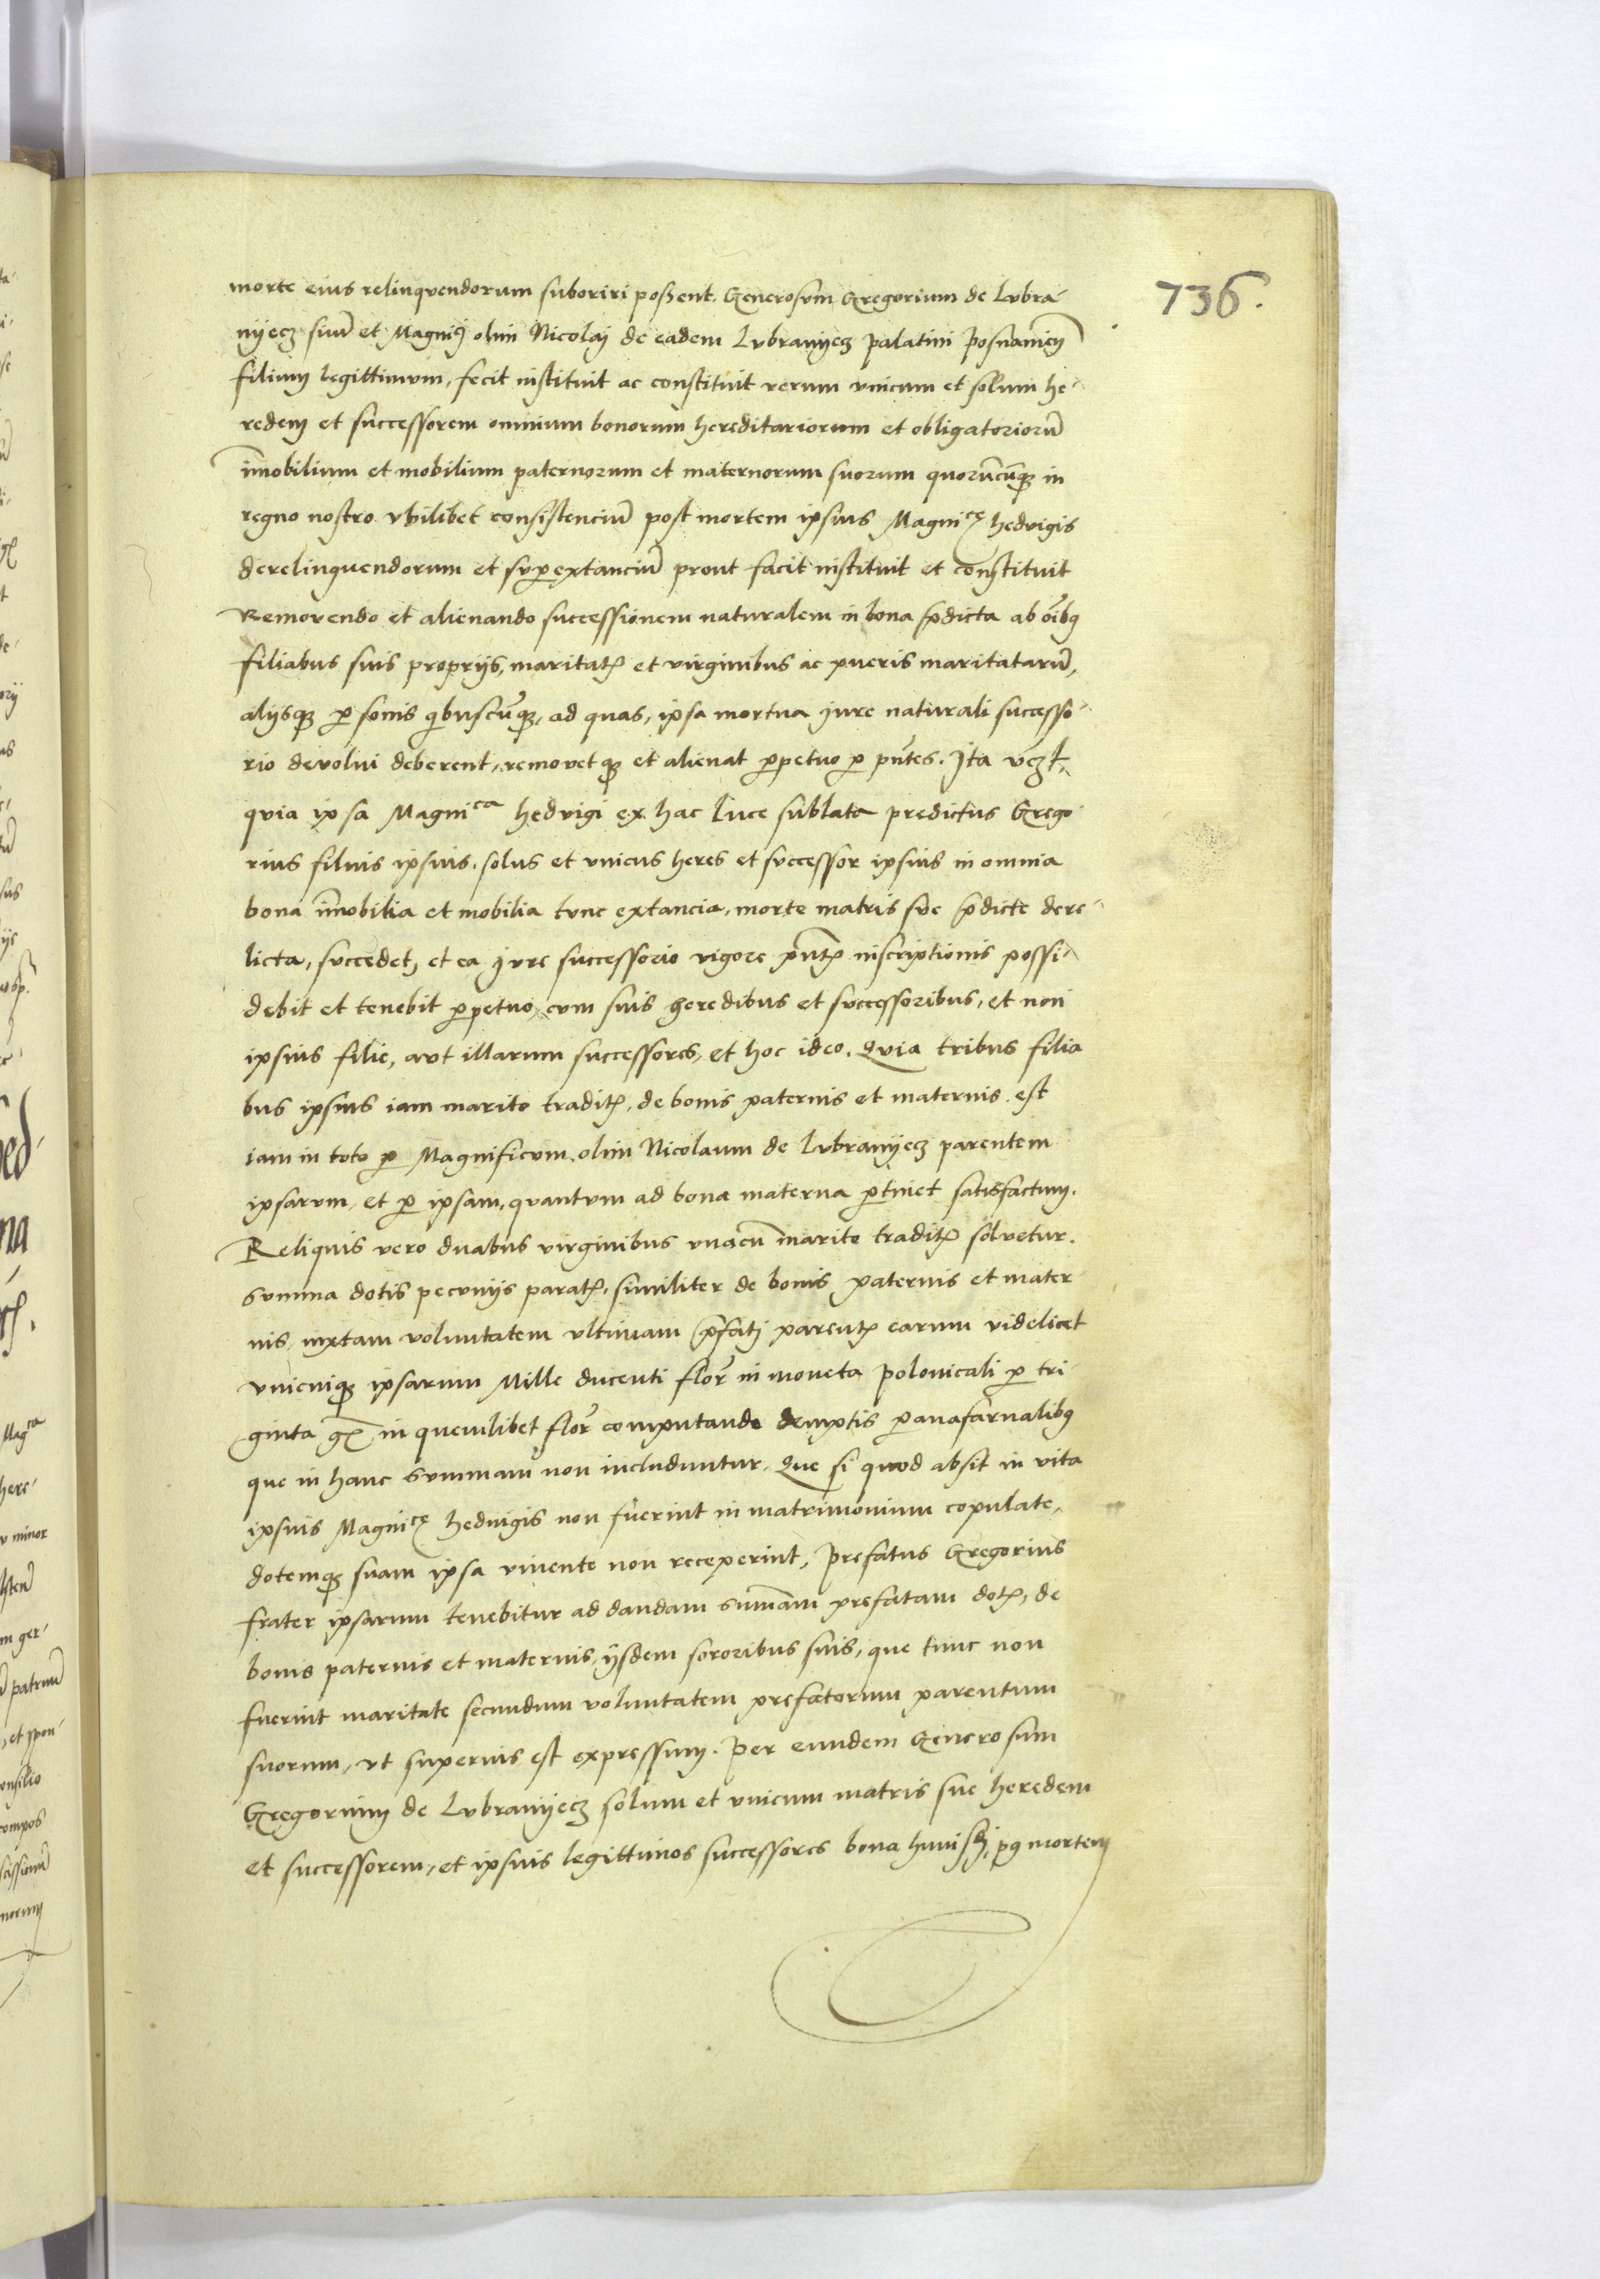 736.
morte eius relinquendorum suboriri possent. Generosum Gregorium de Lubra-
nyecz suum et Magnici olim Nicolaj de eadem Lubranyecz palatini posnaniensis
filium legittimum, fecit instituit ac constituit verum vnicum et solum he-
redem et successorem omnium bonorum hereditariorum et obligatoriorum̄
im̄obilium et mobilium paternorum et maternorum suorum quorumcunq₃ in
regno nostro vbilibet consistenciū post mortem ipsius Magnice hedvigis
derelinquendorum et superextanciū prout facit instituit et constituit
Removendo et alienando successionem naturalem in bona p̄dicta ab oībus
filiabus suis proprijs, maritatꝭ et virginibus ac pueris maritatarū,
alijsq₃ personis q̄buscunq₃, ad quas, ipsa mortua jure naturali successo-
rio devolui deberent, removetq₃ et alienat perpetuo per pn̄tes. Ita vcz t,
quia ipsa Magnica hedvigi ex hac luce sublata predictus Grego-
rius filius ipsius, solus et vnicus heres et successor ipsius in omnia
bona im̄obilia et mobilia tunc extancia, morte matris sue p̄dicte dere-
licta, succedet, et ea jure successorio vigore pn̄tꝭ inscriptionis possi-
debit et tenebit perpetuo, cum suis heredibus et successoribus, et non
ipsius filie, aut illarum successores, et hoc ideo. Quia tribus filia
bus ipsius iam marito traditꝭ, de bonis paternis et maternis est
iam in toto per Magnificum olim Nicolaum de Lubranyecz parentem
ipsarum, et per ipsam, quantum ad bona materna pertinet satisfactum.
Reliquis vero duabus virginibus vnacū marito traditꝭ solvetur.
summa dotis pecunijs paratꝭ, similiter de bonis paternis et mater
nis, iuxtam voluntatem vltimam p̄fatj parentꝭ earum videlicet
vnicuiq₃ ipsarum Mille ducenti flor̄ in moneta polonicali per tri-
ginta gꝭ in quemlibet flor̄ computando demptis peranafarnalibus
que in hanc summam non includuntur. Que si quod absit in vita
ipsius Magnice hedvigis non fuerint in matrimonium copulate,
dotemq₃ suam ipsa vivente non receperint, prefatus Gregorius
frater ipsarum tenebitur ad dandam sum̄am prefatam dotꝭ, de
bonis paternis et maternis, ijsdem sororibus suis, que tunc non
fuerint maritate secundum voluntatem prefatorum parentum
suorum, vt superius est expressum. Per eundem Generosum
Gregorium de Lubranyecz solum et vnicum matris sue heredem
et successorem, et ipsius legittimos successores bona huiusmodi, post mortem